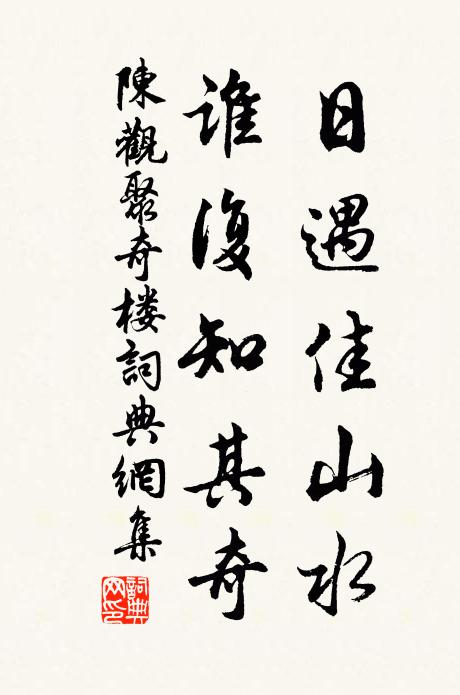 日遇佳山水
誰復知其奇
陳觀聚奇楼詞典網集
詞典網印